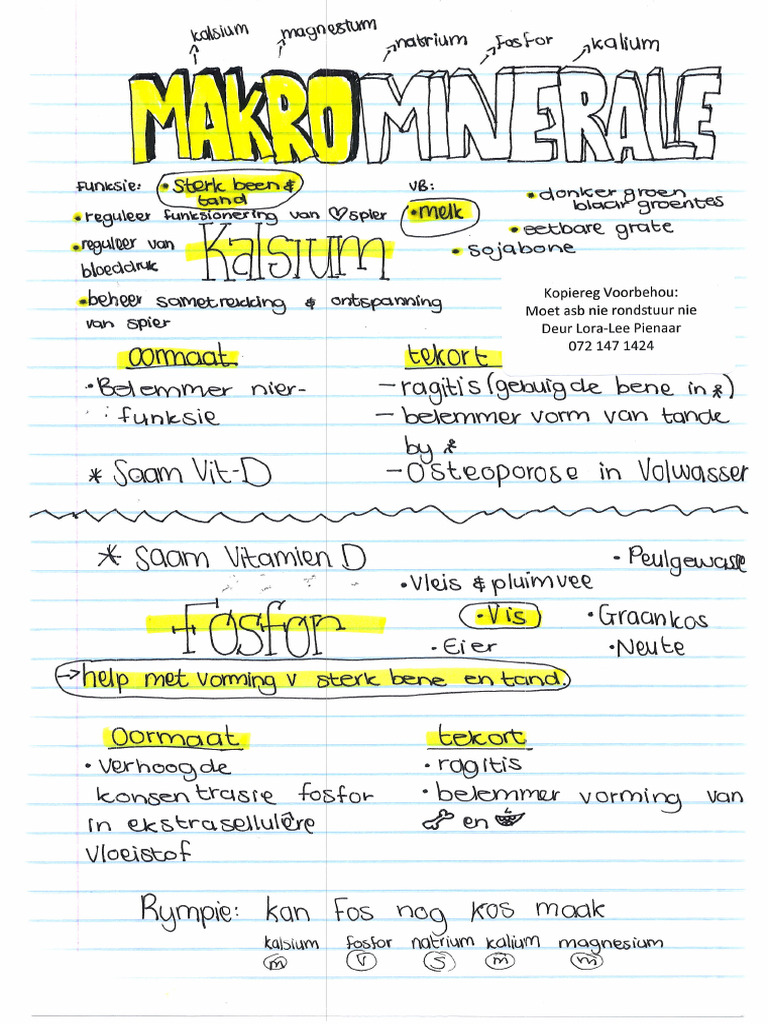 kalsium magnesium natrium fosfor kalium
MAKRO MINERALE
funksie: • sterk been & tand
• reguleer funksionering van spier
• reguleer van bloeddruk
Kalsium
• beheer sametrekking & ontspanning
van spier
VB:
• melk
• donker groen
blaar groentes
• eetbare grate
• sojabone
Kopiereg Voorbehou:
Moet asb nie rondstuur nie
Deur Lora-Lee Pienaar
072 147 1424
oormaat
• Belemmer nier-
funksie
* Saam Vit-D
tekort
– ragitis (gebuigde bene in )
– belemmer vorm van tande
by
– Osteoporose in Volwasser
* Saam Vitamien D
Fosfor
• Vleis & pluimvee
• Peulgewasse
• Vis
• Graankos
• Eier
• Neute
→ help met vorming v sterk bene en tand.
oormaat
• verhoogde
konsentrasie fosfor
in ekstrasellulêre
vloeistof
tekort
• ragitis
• belemmer vorming van
en
Rympie: kan Fos nog kos maak
kalsium fosfor natrium kalium magnesium
m v s m m